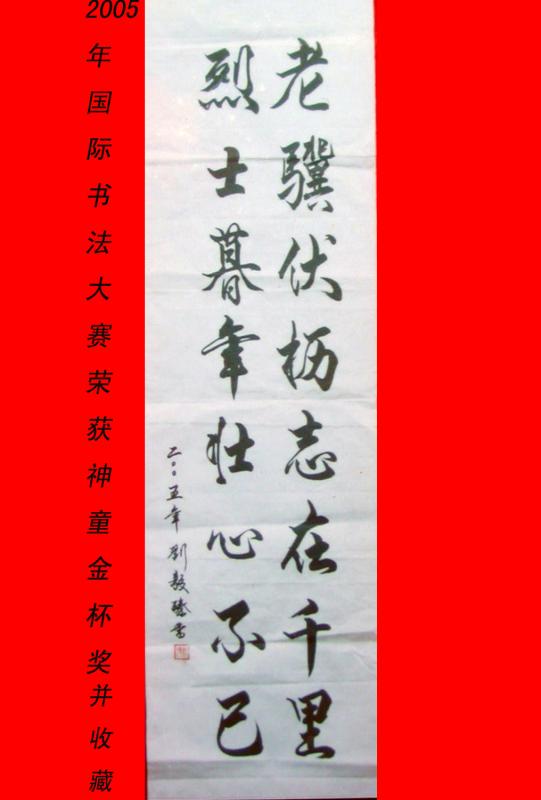 老驥伏枥志在千里
烈士暮年壮心不已
二〇〇五年劉毅書
2005年国际书法大赛荣获神童金杯奖并收藏